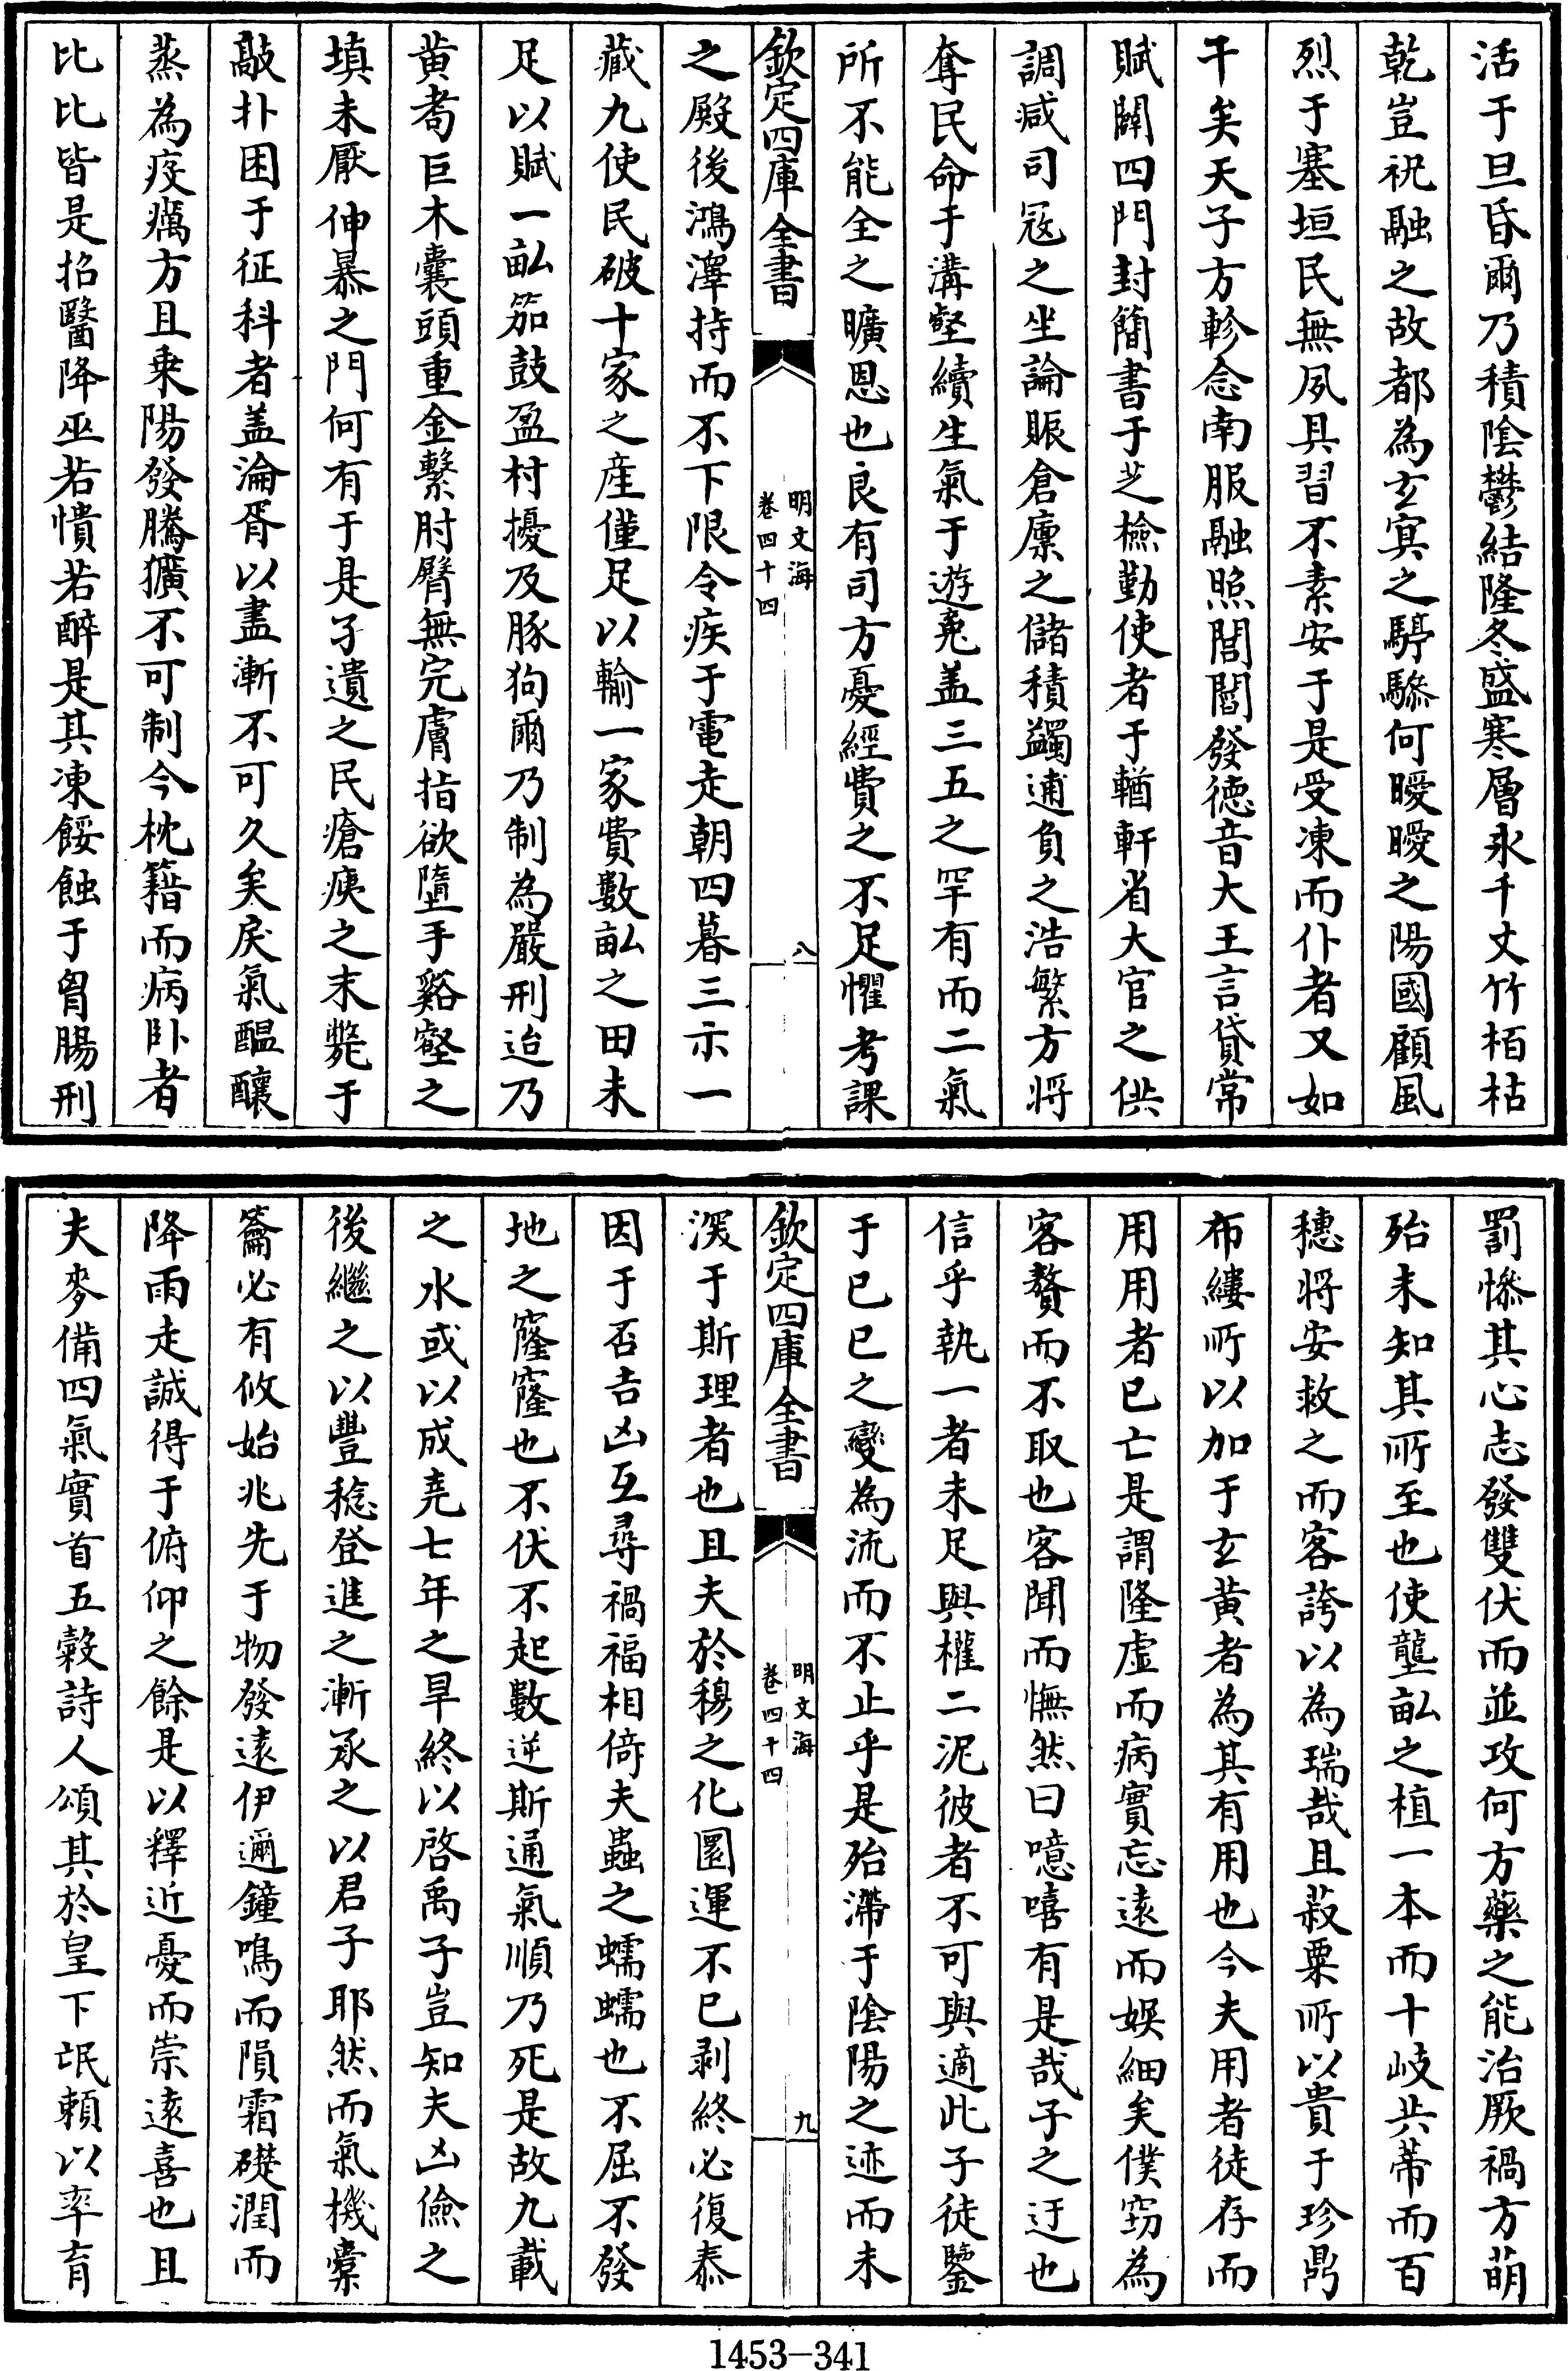 活于旦昏爾乃積陰鬱結隆冬盛寒層氷千丈竹栢枯
乾豈祝融之故都為玄冥之騲驂何曖曖之陽國顧風
烈于塞垣民無夙具習不素安于是受凍而仆者又如
干矣天子方軫念南服融照閭閻發徳音大王言貸常
賦闢四門封簡書于芝檢勤使者于輶軒省大官之供
調減司冦之坐論賑倉廪之儲積蠲逋負之浩繁方將
奪民命于溝壑續生氣于遊䰟盖三五之罕有而二氣
所不能全之曠恩也良有司方憂經費之不足懼考課
欽定四庫全書
明文海
卷四十四
八
之殿後鴻澤持而不下限令疾于電走朝四暮三示一
藏九使民破十家之産僅足以輸一家費數畝之田未
足以賦一畝笳鼓盈村擾及豚狗爾乃制為嚴刑迨乃
黄耉巨木囊頭重金繫肘臂無完膚指欲墮手谿壑之
填未厭伸暴之門何有于是孑遺之民瘡痍之末斃于
敲扑困于征科者盖淪胥以盡漸不可久矣戾氣醖釀
蒸為疫癘方且乗陽發騰獷不可制今枕籍而病卧者
比比皆是招醫降巫若憒若醉是其凍餒蝕于胷腸刑
罰慘其心志發雙伏而並攻何方藥之能治厥禍方萌
殆未知其所至也使壟畝之植一本而十岐共蒂而百
穗將安救之而客誇以為瑞哉且菽粟所以貴于珍鼎
布縷所以加于玄黄者為其有用也今夫用者徒存而
用用者已亡是謂隆虚而病實忘遠而娱細矣僕竊為
客贅而不取也客聞而憮然曰噫嘻有是哉子之迂也
信乎執一者未足與權二泥彼者不可與適此子徒鑒
于已已之變為流而不止乎是殆滯于陰陽之迹而未
欽定四庫全書
明文海
卷四十四
九
深于斯理者也且夫於穆之化圜運不已剥終必復泰
因于否吉凶互尋禍福相倚夫蟲之蠕蠕也不屈不發
地之窿窿也不伏不起數逆斯通氣順乃死是故九載
之水或以成堯七年之旱終以啓禹子豈知夫凶儉之
後繼之以豐稔登進之漸承之以君子耶然而氣機橐
籥必有攸始兆先于物發遠伊邇鐘鳴而隕霜礎潤而
降雨走誠得于俯仰之餘是以釋近憂而崇遠喜也且
夫麥備四氣實首五榖詩人頌其於皇下氓頼以率育
1453-341